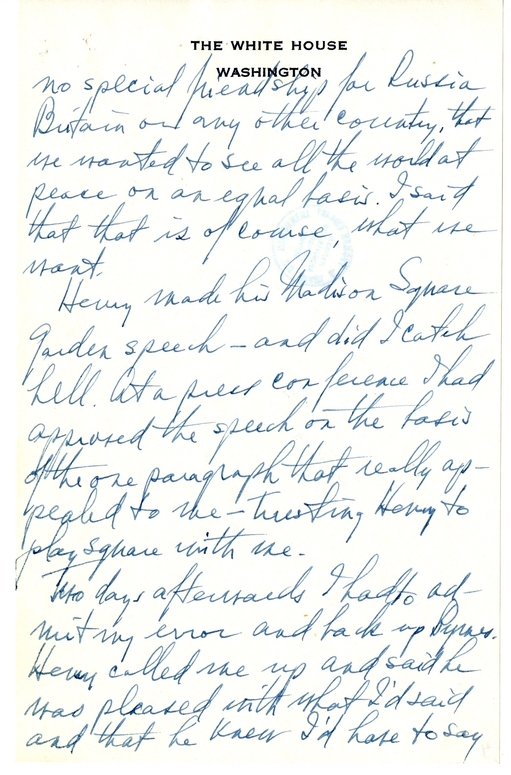 THE WHITE HOUSE
WASHINGTON
no special friendship for Russia
Britain or any other country, that
we wanted to see all the world at
peace on an equal basis. I said
that that is of course, what we
want.
Henry made his Madison Square
Garden speech – and did I catch
hell. At a press conference I had
approved the speech on the basis
of the one paragraph that really ap-
pealed to me – trusting Henry to
play square with me.
Two days afterwards I had to ad-
mit my error and back up Byrnes.
Henry called me up and said he
was pleased with what I'd said
and that he knew I'd have to say